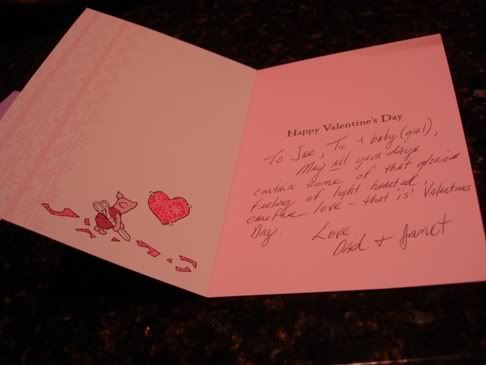 Happy Valentine's Day
To Joe, Tu + baby (girl),
May all your days
contain some of that glorious
feeling of light hearted
love - that is Valentines
Day.
Love
Dad + Janet